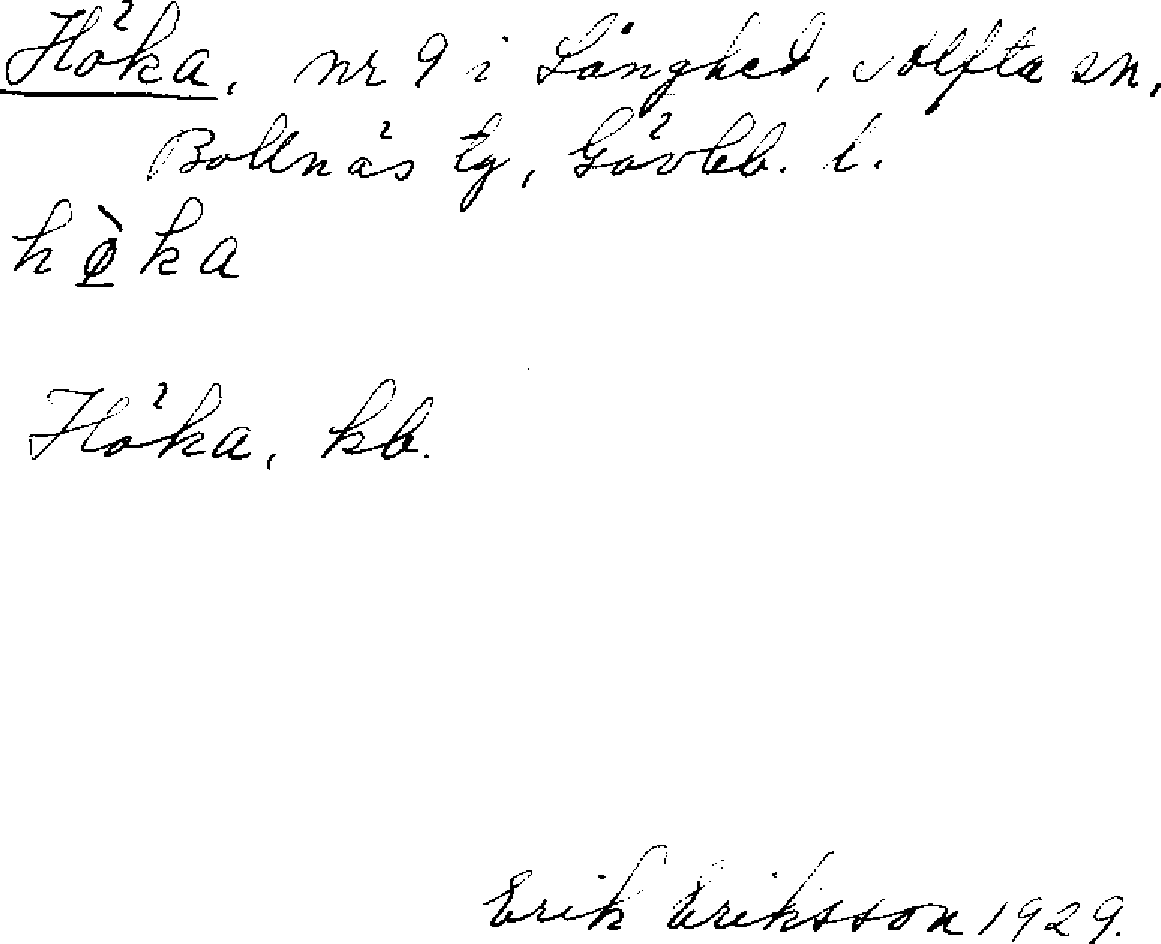 Höka, nr 9 i Långhed, Alfta sn,
Bollnäs tg, Gävleb. l.
hø̀ka
Höka, kb.
Erik Eriksson 1929.